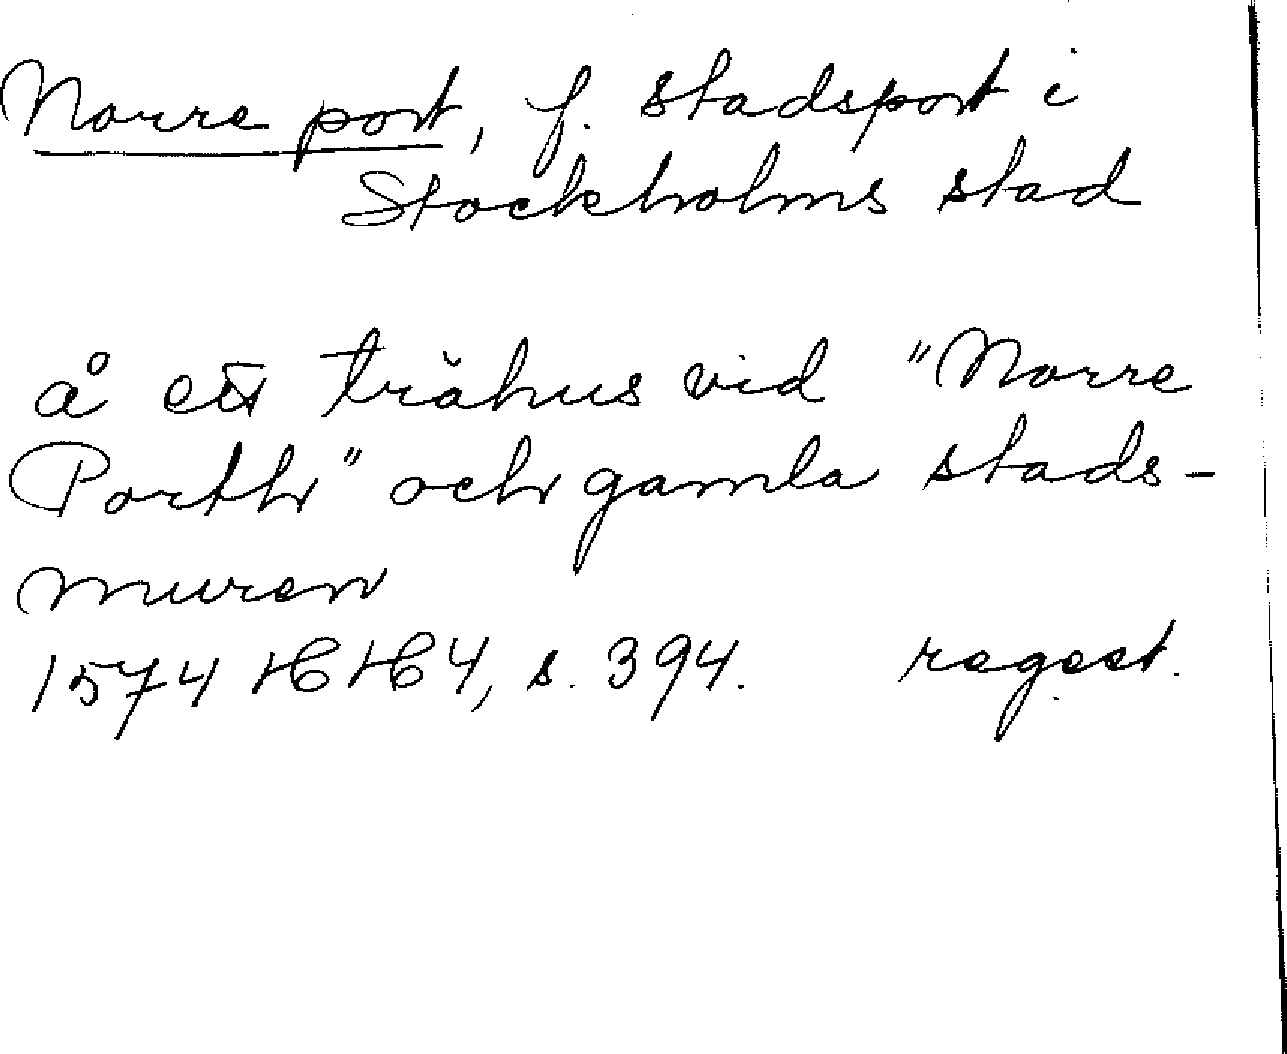 Norre port, f. stadsport i
Stockholms stad
å ett trähus vid "Norre
Porth" och gamla stads-
muren
1574 HH4, s. 394. regest.